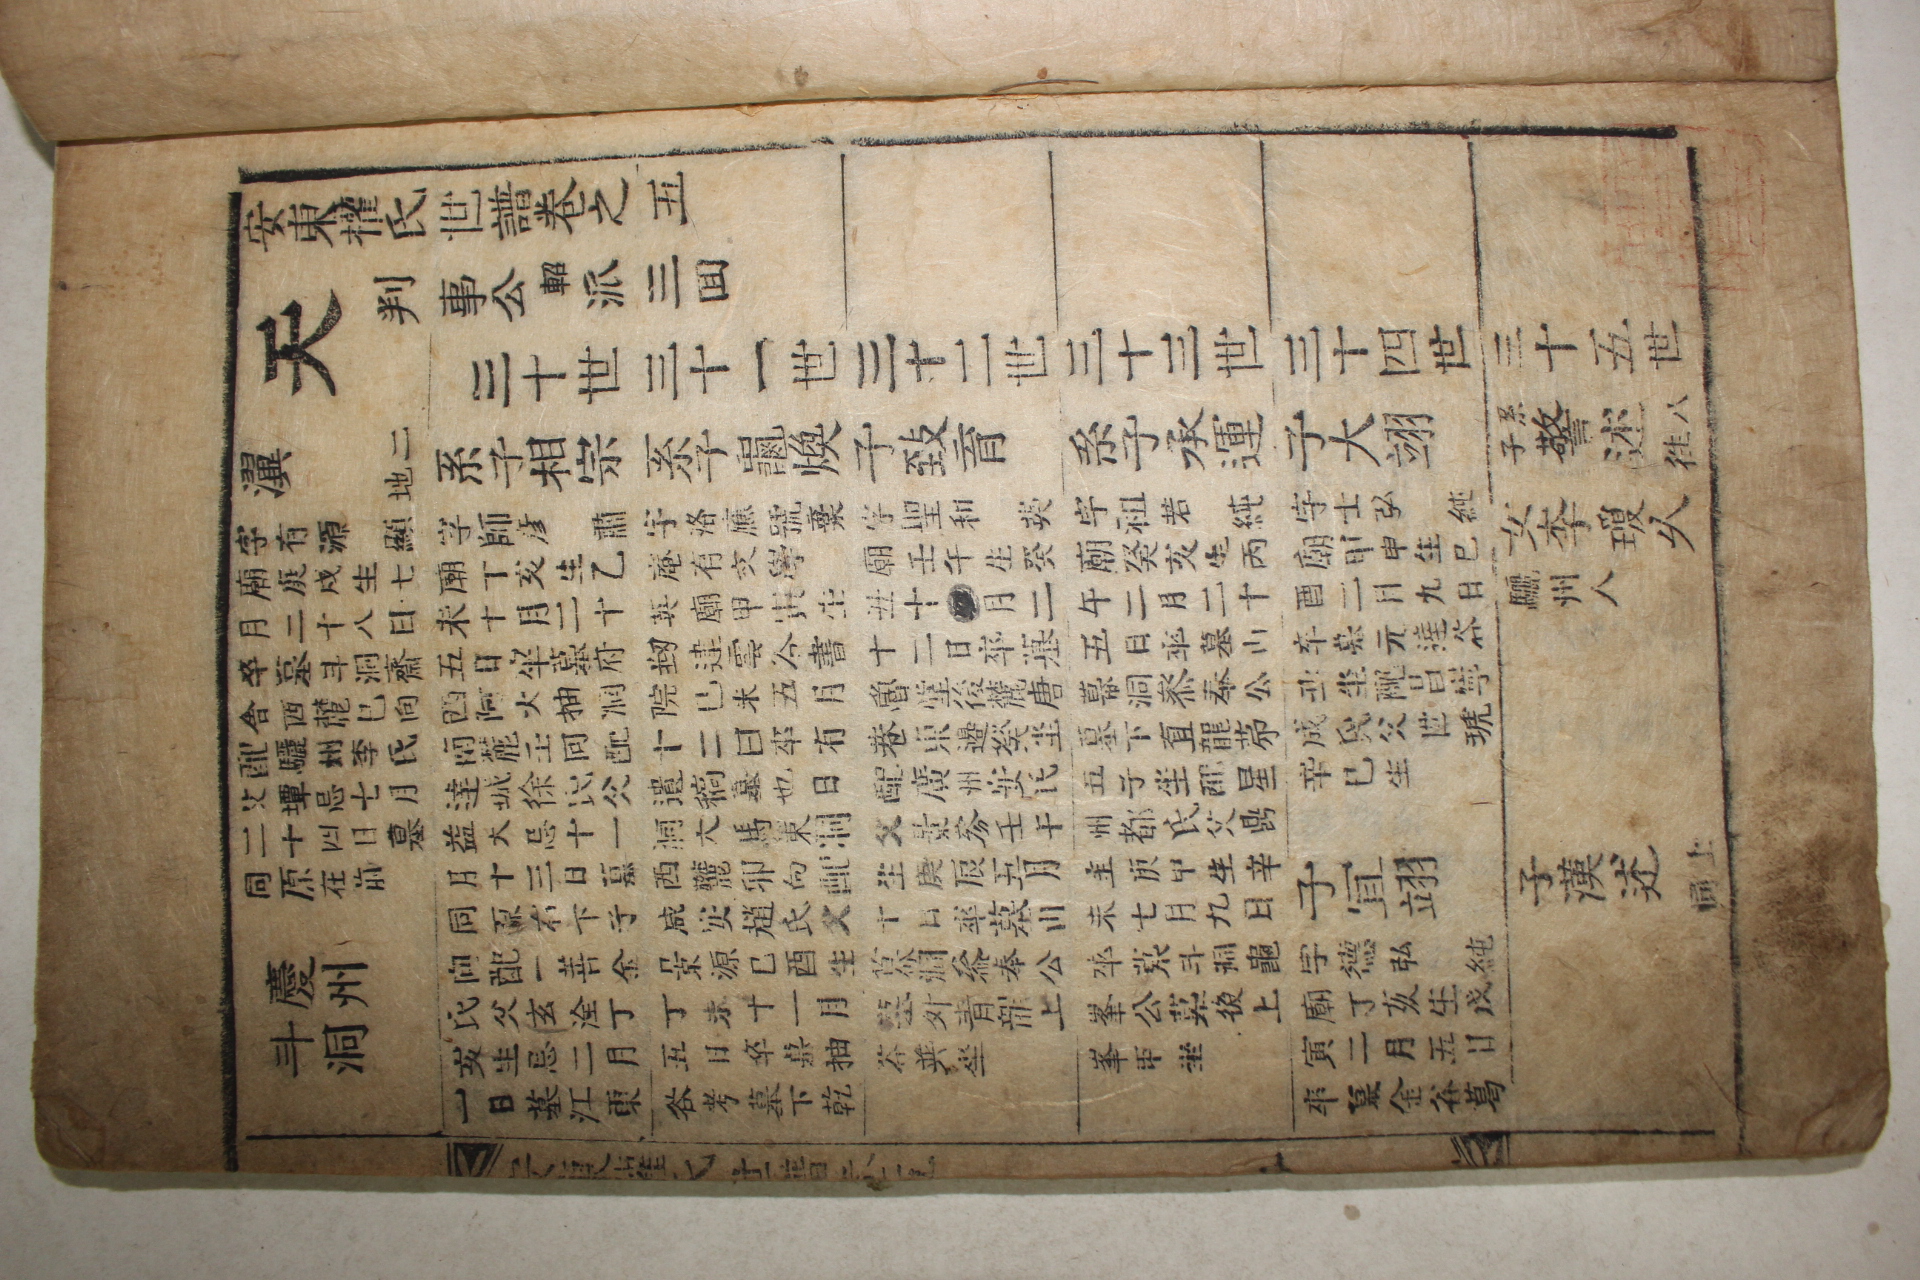 安東權氏世譜卷之五
判事公軺派三回
天
三十世
三十一世
三十二世
三十三世
三十四世
三十五世
瀷
二地
字有源 顯
廟庚戌生七
月二十八日
卒墓斗洞齋
舍西麓巳向
配驪州李氏
父墰忌七月
二十四日墓
同原在前
慶州
斗洞
系子相宗
字師彦 肅
廟丁亥生乙
未十月二十
五日卒墓府
西阿火抽洞
南麓壬向配
達城徐氏父
益大忌十一
月十三日墓
同原右下子
向配一善金
氏父玄淦丁
亥生忌二月
一日墓江東
系子龜煥
字洛應號棄
庵有文學
英廟甲寅生
剏建雲谷書
院己未五月
十二日卒有
遺稿墓也日
洞大馬東洞
西麓卯向配
咸安趙氏父
景源己酉生
丁未十一月
五日卒墓抽
谷考墓下乾
子致育
字聖和 英
廟壬午生癸
丑十月二
十二日卒墓
魯堂後麓唐
巷東邊癸坐
配廣州安氏
父景泰壬午
生庚辰五月
十日卒墓川
幕洞叅奉公
墓外青龍上
谷巽坐
系子承運
字祖若 純
廟癸亥生丙
午二月二十
五日卒墓山
幕洞叅奉公
墓下直龍茅
五子坐配星
州都氏父鼎
主庚申生辛
未七月九日
卒墓斗洞龜
峯公墓後上
峯甲坐
子大翊
字士弘 純
廟甲申生巳
酉二月九日
卒墓元達谷
丑坐配昌寧
成氏父世琥
辛巳生
子宜翊
字德弘 純
廟丁亥生戊
寅二月五日
卒墓金谷葛
系子警述
八徃
女李璦久
驪州人
子漢述
上同